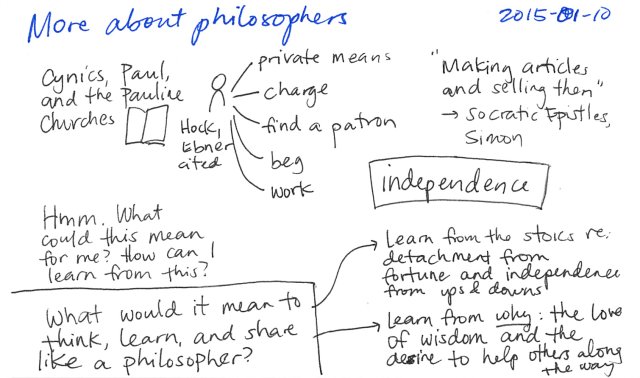 More about philosophers
2015-01-10
Cynics, Paul,
and the Pauline
Churches
Hock,
Ebner
cited
private means
charge
find a patron
beg
work
"Making articles
and selling them"
→ Socratic Epistles,
Simon
independence
Hmm. What
could this mean
for me? How can I
learn from this?
What would it mean to
think, learn, and share
like a philosopher?
Learn from the stoics re:
detachment from
fortune and independence
from ups & downs
Learn from why: the love
of wisdom and the
desire to help others along
the way